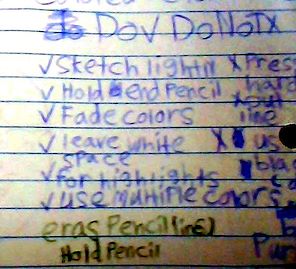 Do√ Do Not X
√ Sketch lightly X Press
√ Hold end Pencil hard
√ Fade colors X out line
√ leave white X us
space
√ for highlights
√ use multiple colors
eras Pencil lines)
Hold Pencil